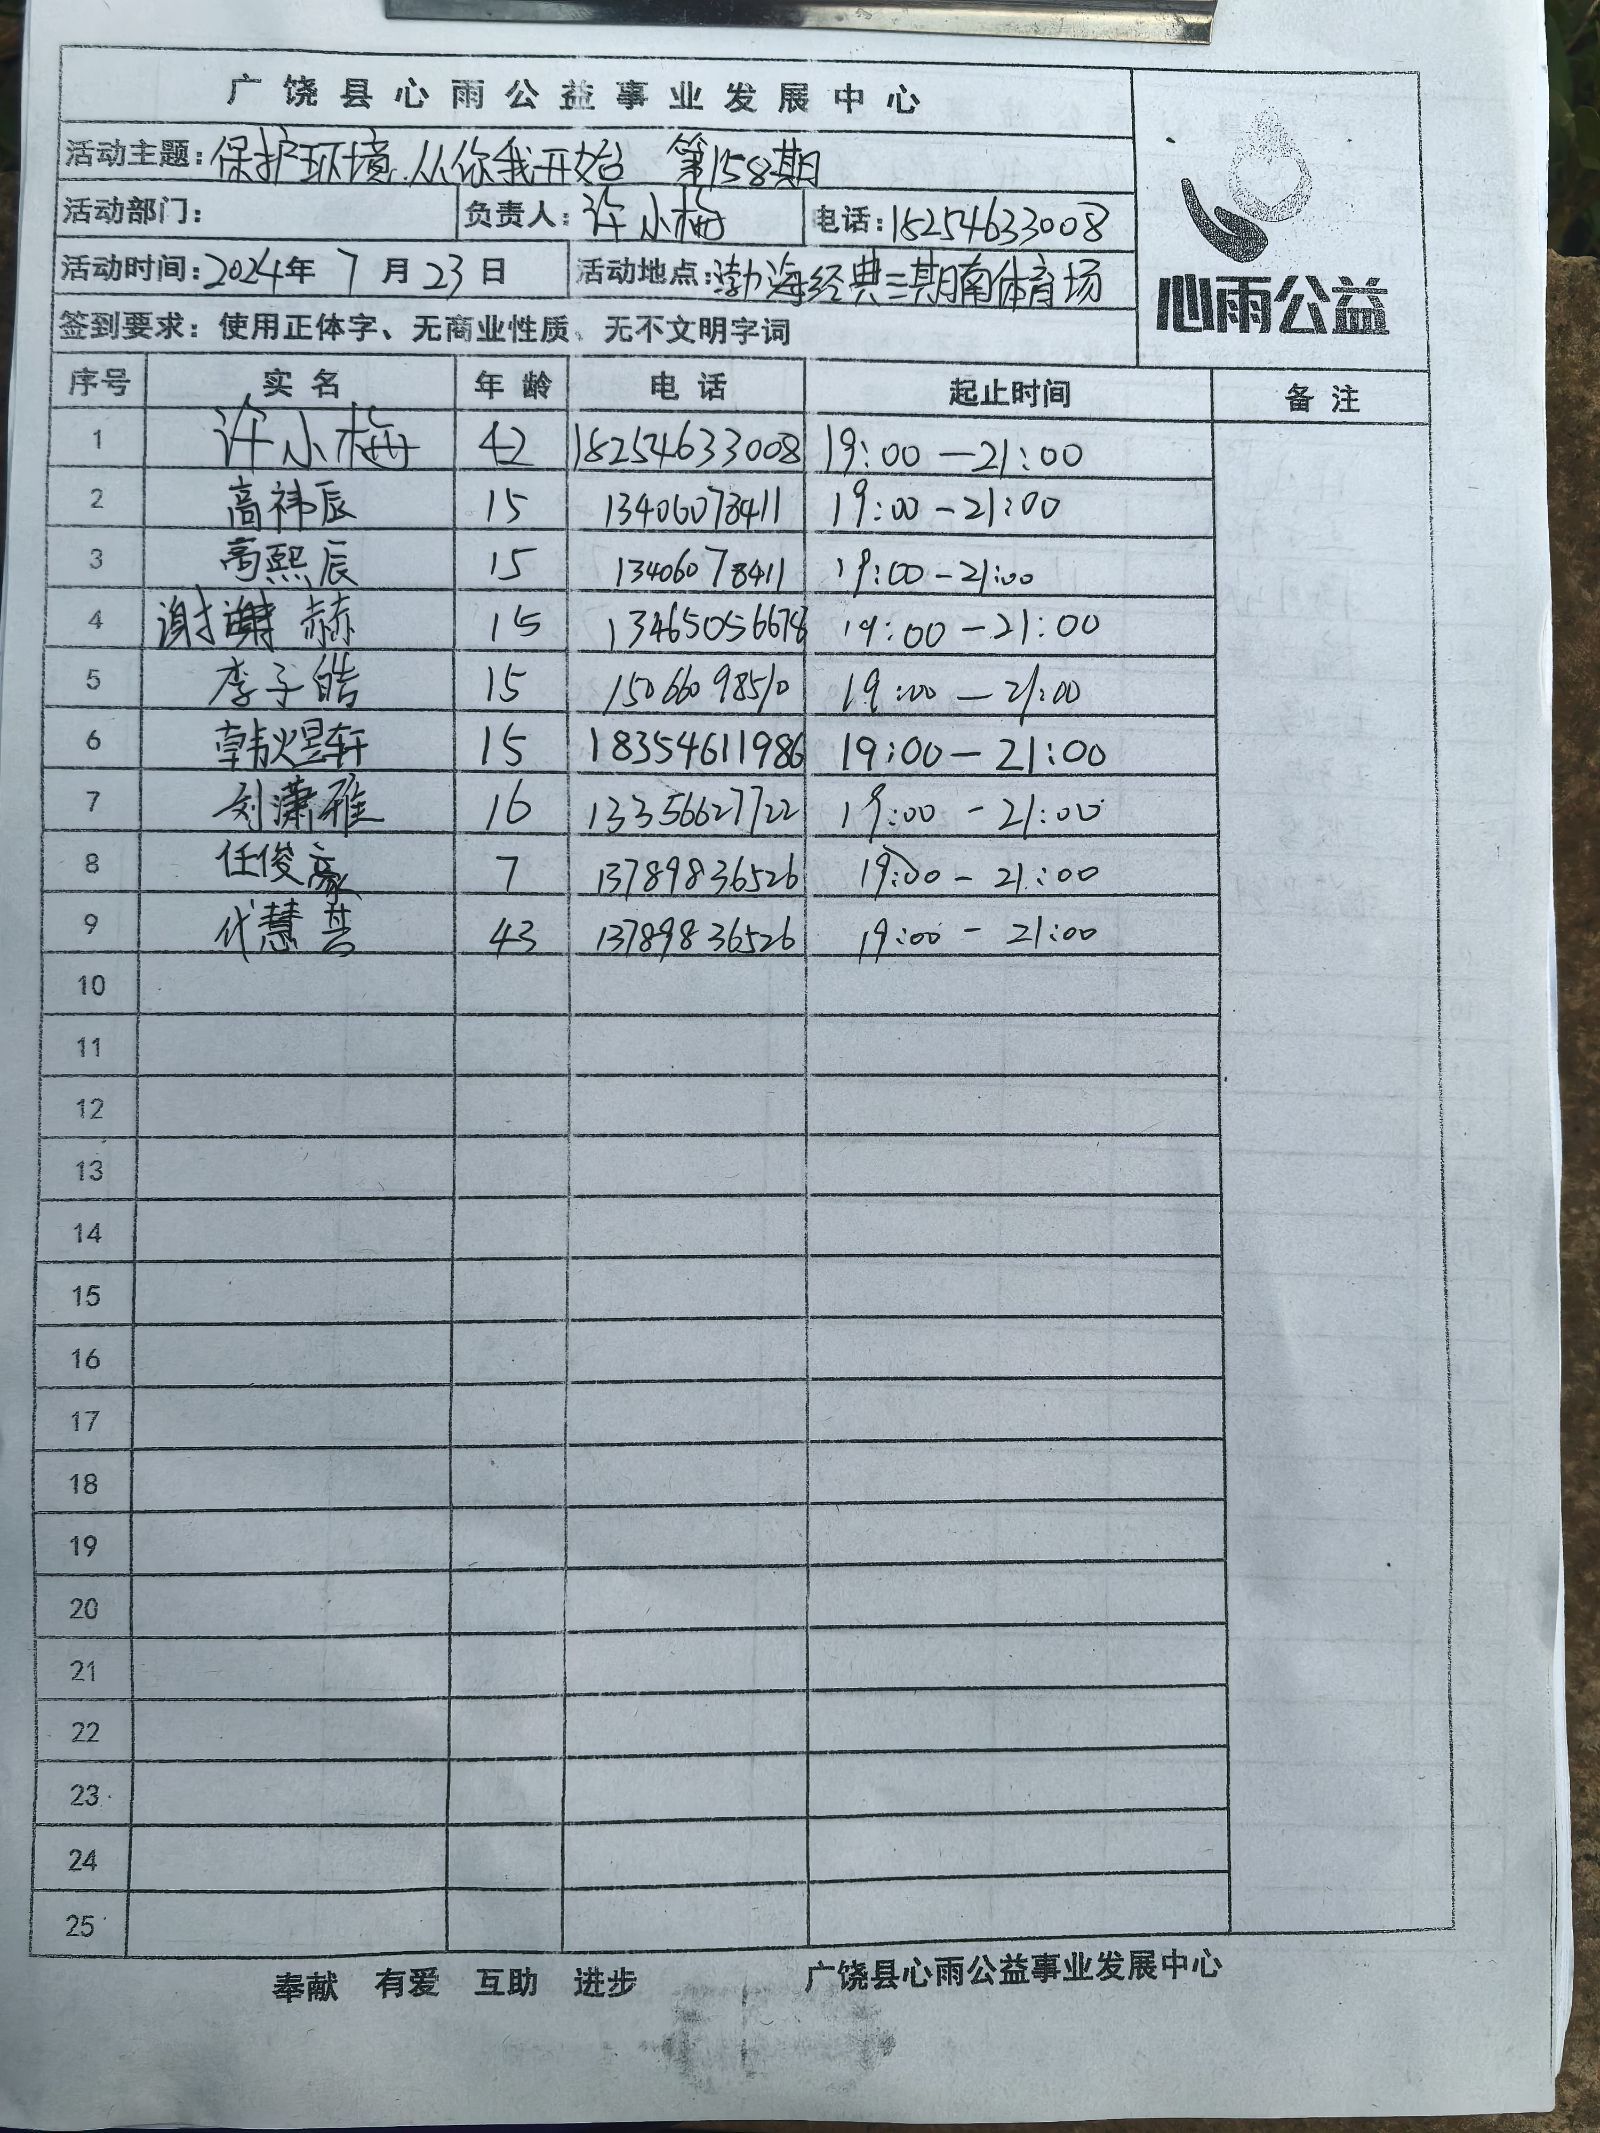 广饶县心雨公益事业发展中心
活动主题：保护环境.从你我开始 第158期
活动部门： 负责人：许小梅 电话：18254633008
活动时间：2024年7月23日 活动地点：渤海经典三期南体育场
心雨公益
签到要求：使用正体字、无商业性质、无不文明字词
序号 实名 年龄 电话 起止时间 备注
1 许小梅 42 18254633008 19:00—21:00
2 高祎辰 15 13406078411 19:00-21:00
3 高熙辰 15 13406078411 19:00-21:00
4 谢 赫 15 13465056678 19:00-21:00
5 李子皓 15 15066098510 19:00—21:00
6 韩煜轩 15 18354611986 19:00—21:00
7 刘潇雅 16 13356627722 19:00-21:00
8 任俊豪 7 13789836526 19:00-21:00
9 代慧芸 43 13789836526 19:00-21:00
10
11
12
13
14
15
16
17
18
19
20
21
22
23
24
25
奉献 有爱 互助 进步 广饶县心雨公益事业发展中心